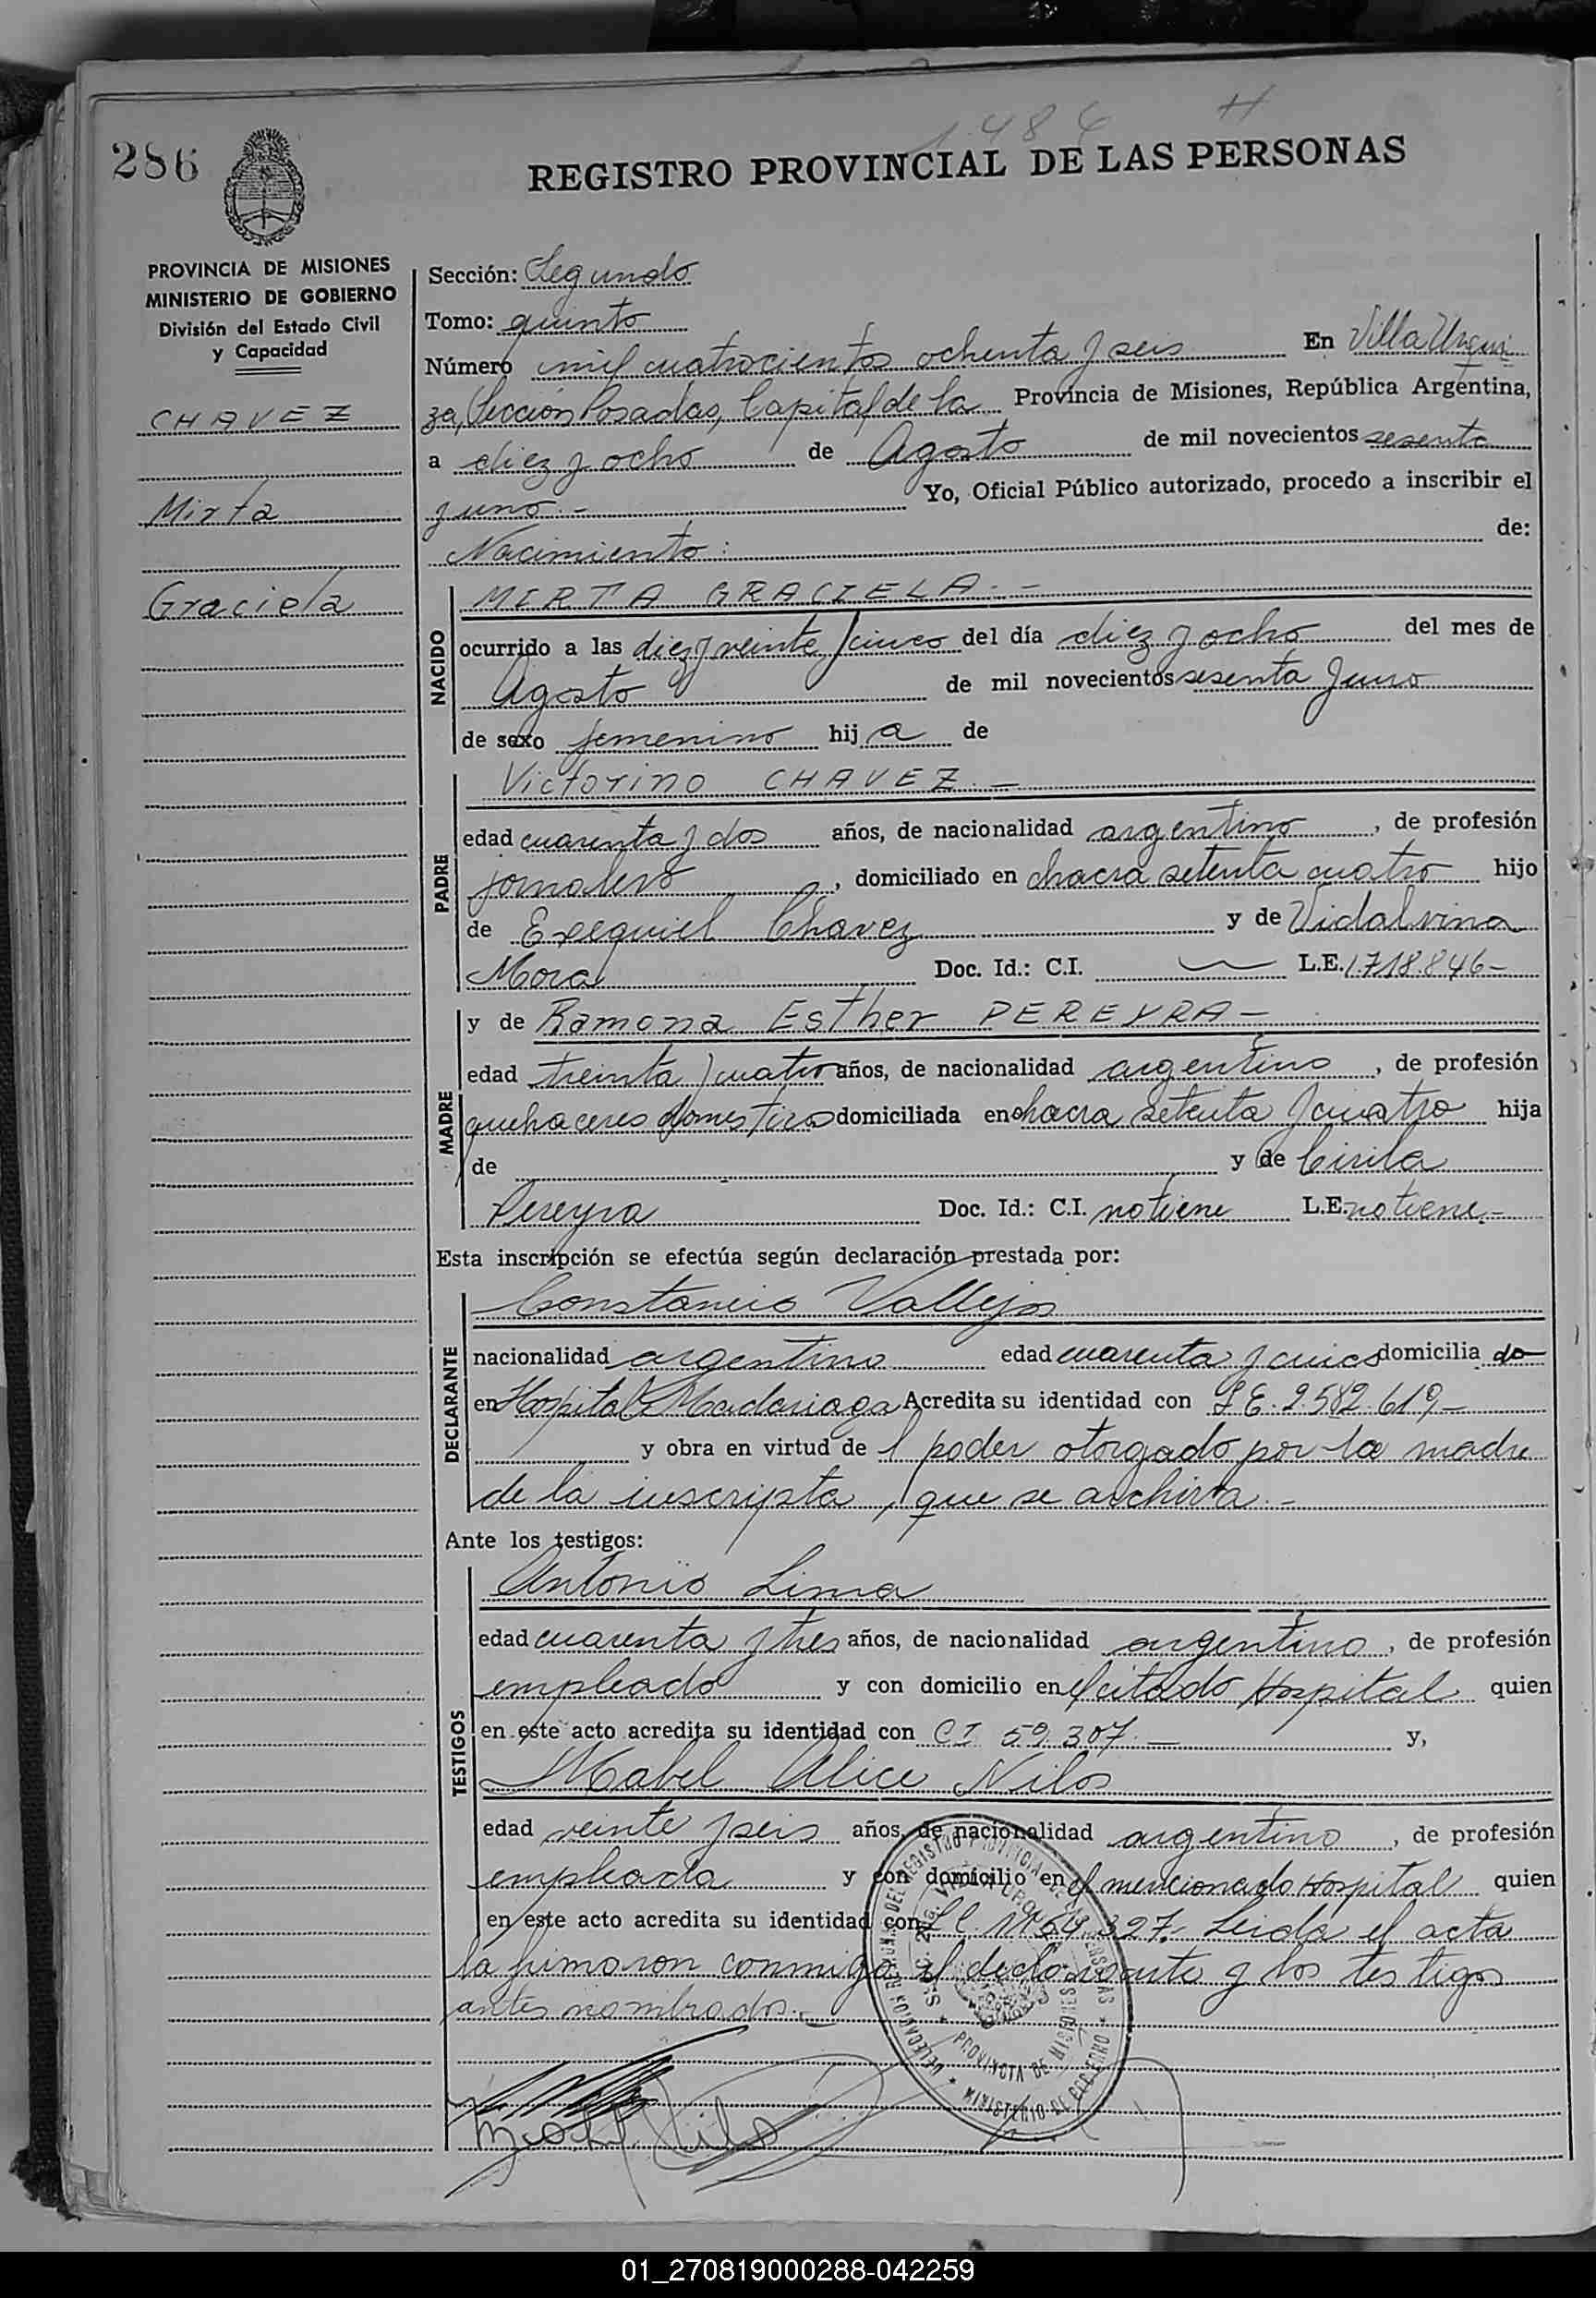 1486 H
286
REGISTRO PROVINCIAL DE LAS PERSONAS
PROVINCIA DE MISIONES
MINISTERIO DE GOBIERNO
División del Estado Civil
y Capacidad
CHAVEZ
Mirta
Graciela
Sección: Segundo
Tomo: quinto
Número mil cuatrocientos ochenta y seis En Villa Urqui
za, Sección Posadas, Capital de la Provincia de Misiones, República Argentina,
a diez y ocho de Agosto de mil novecientos sesenta
y uno.- Yo, Oficial Público autorizado, procedo a inscribir el
Nacimiento: de:
NACIDO
MIRTA GRACIELA.-
ocurrido a las diez y veinte y cinco del día diez y ocho del mes de
Agosto de mil novecientos sesenta y uno
de sexo femenino hija de
PADRE
Victorino CHAVEZ.-
edad cuarenta y dos años, de nacionalidad argentino, de profesión
jornalero, domiciliado en chacra setenta cuatro hijo
de Exequiel Chavez y de Vidalvina
Mora Doc. Id.: C.I. L.E. 1.718.846-
MADRE
y de Ramona Esther PEREYRA-
edad treinta y cuatro años, de nacionalidad argentino, de profesión
quehaceres domesticos domiciliada en chacra setenta y cuatro hija
de y de Cirila
Pereyra Doc. Id.: C.I. no tiene L.E. no tiene.-
Esta inscripción se efectúa según declaración prestada por:
DECLARANTE
Constancio Vallejos
nacionalidad argentino edad cuarenta y cinco domiciliado
en Hospital Madariaga Acredita su identidad con L.E. 2.582.619-
y obra en virtud del poder otorgado por la madre
de la inscripta, que se archiva.-
Ante los testigos:
TESTIGOS
Antonio Lima
edad cuarenta y tres años, de nacionalidad argentino, de profesión
empleado y con domicilio en el citado Hospital quien
en este acto acredita su identidad con CI 59.307.- y,
Mabel Alice Nilos
edad veinte y seis años, de nacionalidad argentino, de profesión
empleada y con domicilio en el mencionado Hospital quien
en este acto acredita su identidad con Nº 327. Leida el acta
la firmaron conmigo el declarante y los testigos
antes nombrados.-
PROVINCIA DE MISIONES
01_270819000288-042259